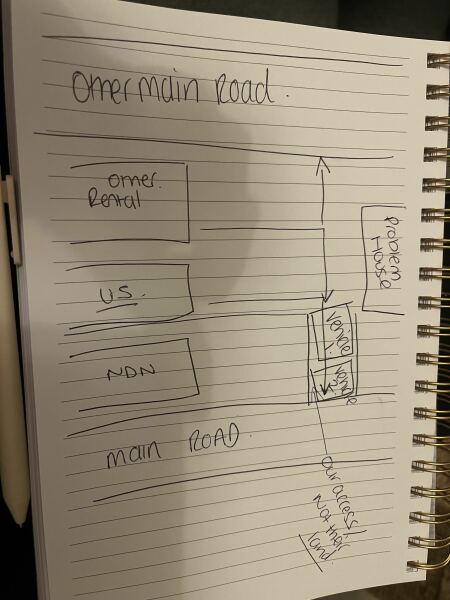 Omer main Road.
omer.
Rental
Problem
House
US.
Vehicle
1.
Vehicle
NDN
MAIN ROAD.
our access!
Not their
land.